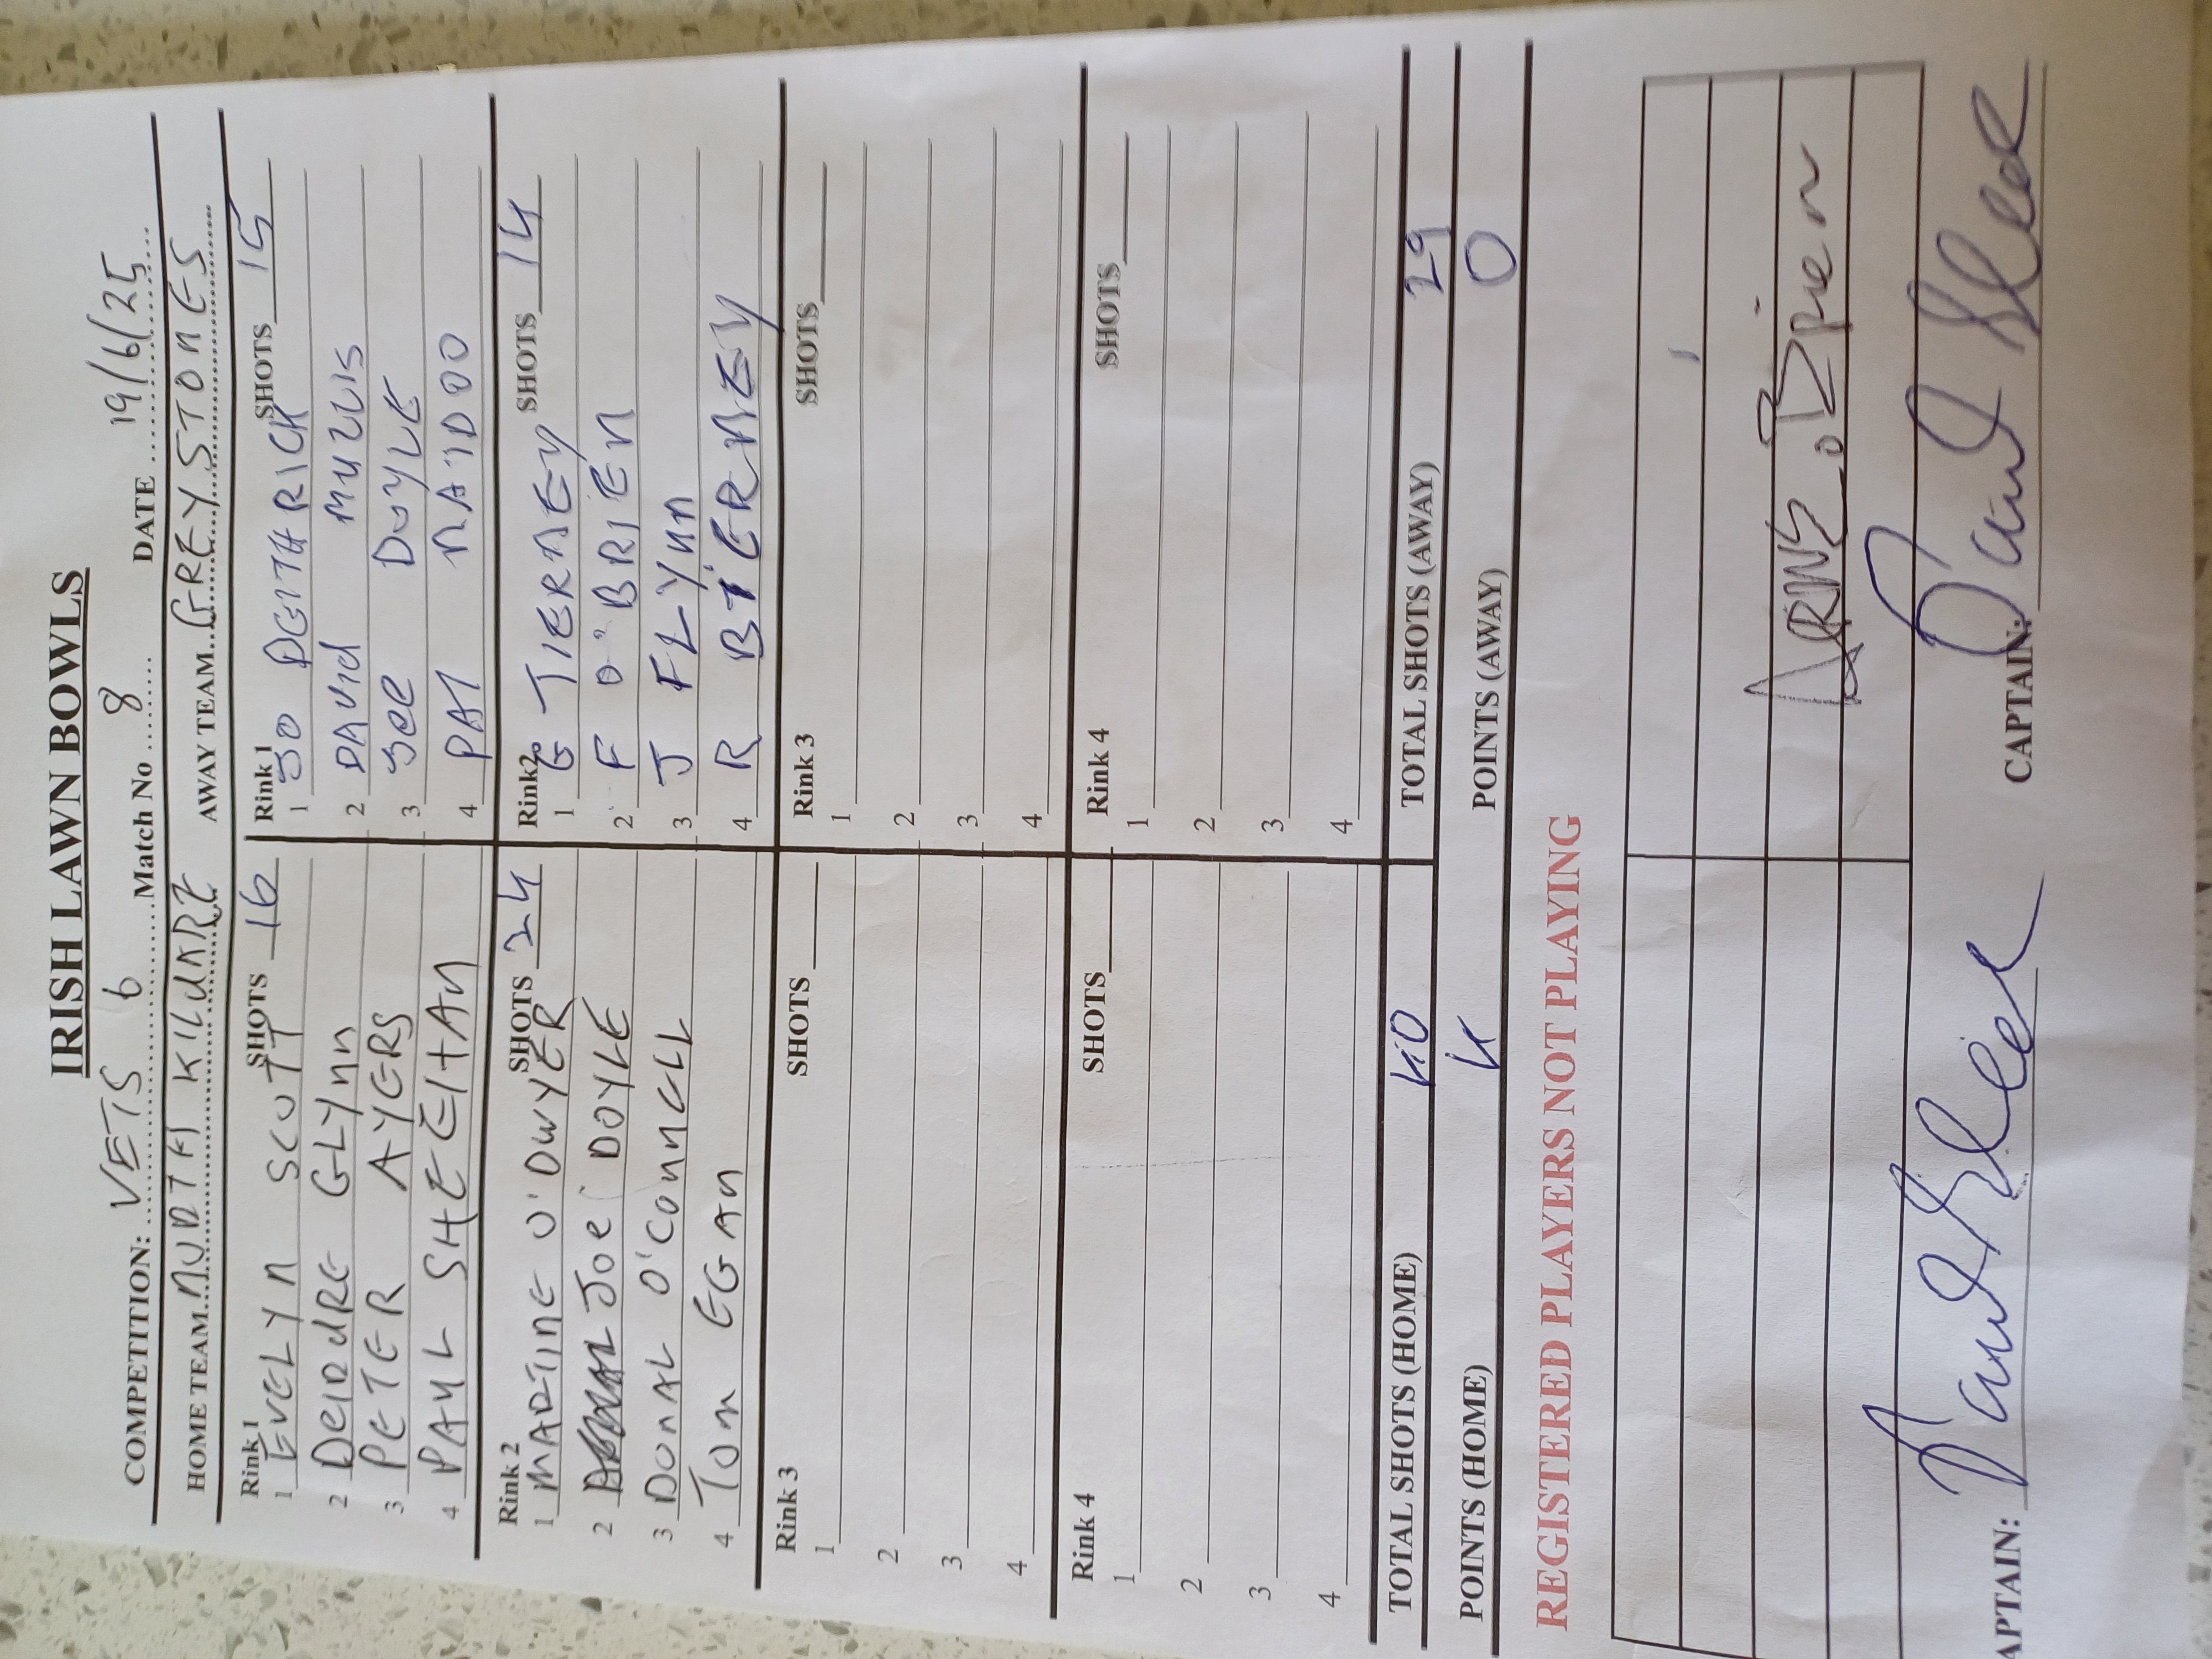 IRISH LAWN BOWLS
COMPETITION: VETS 6 Match No 8 DATE 19/6/25
HOME TEAM NORTH KILDARE AWAY TEAM GREYSTONES
Rink 1 SHOTS 16 Rink 1 SHOTS 15
1 EVELYN SCOTT 1 JO DEITHRICK
2 DEIDRE GLYNN 2 DAVID MULLIS
3 PETER AYERS 3 DOYLE
4 PAUL SHEEHAN 4 PAT NAIDOO
Rink 2 SHOTS 24 Rink2 SHOTS 14
1 MARTINE O'DWYER 1 G TIERNEY
2 JOE DOYLE 2 F O'BRIEN
3 DONAL O'CONNELL 3 J FLYNN
4 TOM EGAN 4 R BIERNEY
Rink 3 SHOTS Rink 3 SHOTS
1 1
2 2
3 3
4 4
Rink 4 SHOTS Rink 4 SHOTS
1 1
2 2
3 3
4 4
TOTAL SHOTS (HOME) 40 TOTAL SHOTS (AWAY) 29
POINTS (HOME) 4 POINTS (AWAY) 0
REGISTERED PLAYERS NOT PLAYING
APTAIN: CAPTAIN: